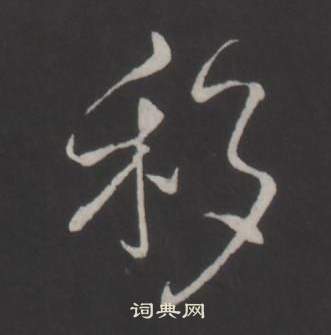 移
词典网